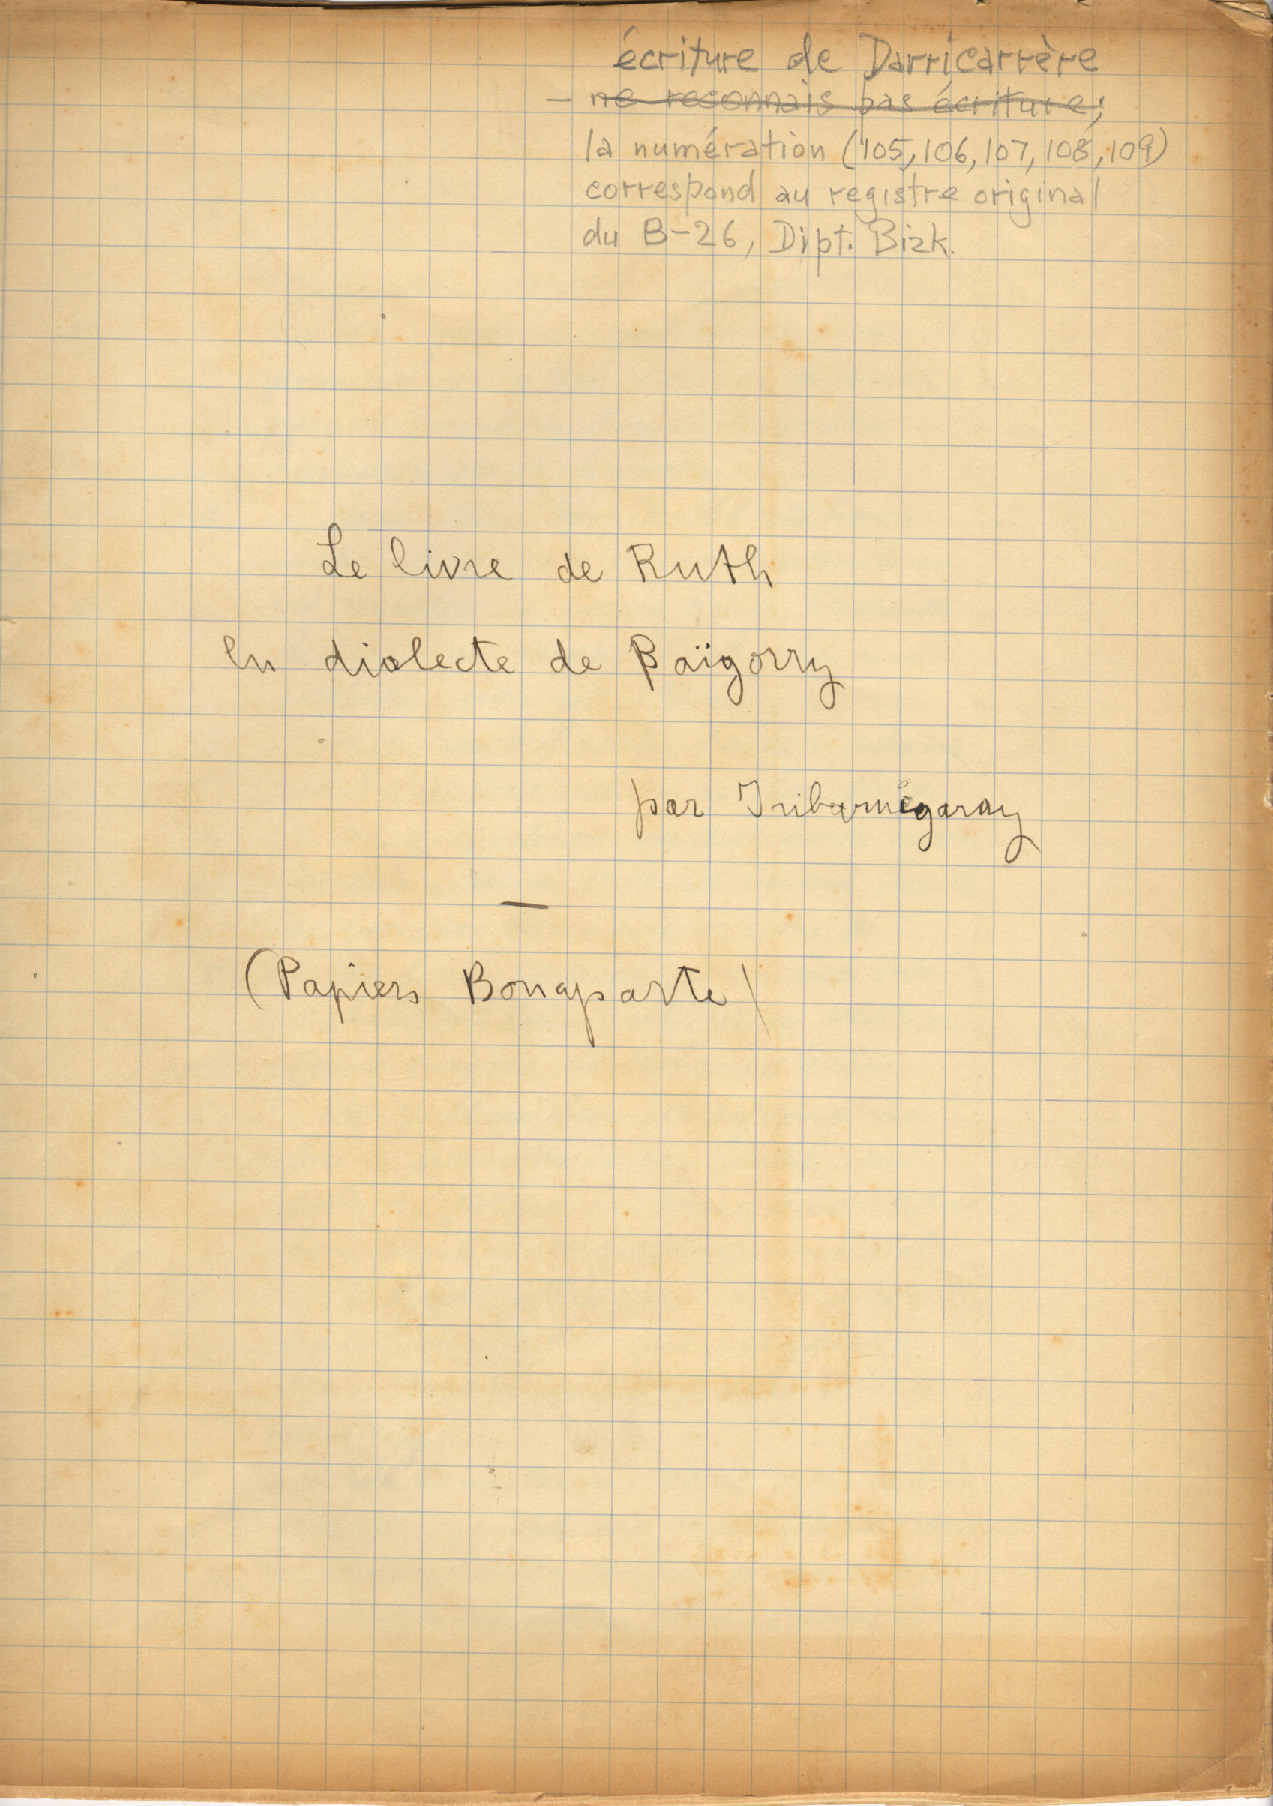 écriture de Darricarrère
– ne reconnais pas écriture;
la numération (105, 106, 107, 108, 109)
correspond au registre original
du B-26, Dipt. Bizk.
Le livre de Ruth
en dialecte de Baïgorry
par Iribarnégaray
—
(Papiers Bonaparte)